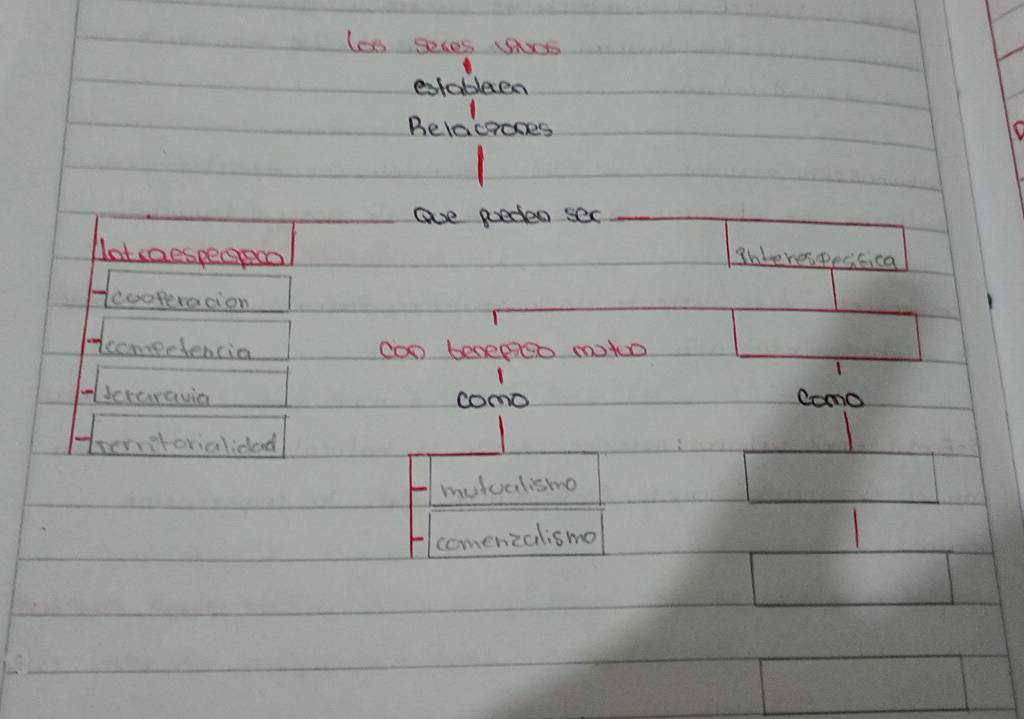 los seres vivos
establecen
Relaciones
Que pueden ser
Intraespecifica
Interespecifica
cooperacion
competencia
con beneficio mutuo
Jerarquia
como
como
Territorialidad
mutualismo
comenzalismo